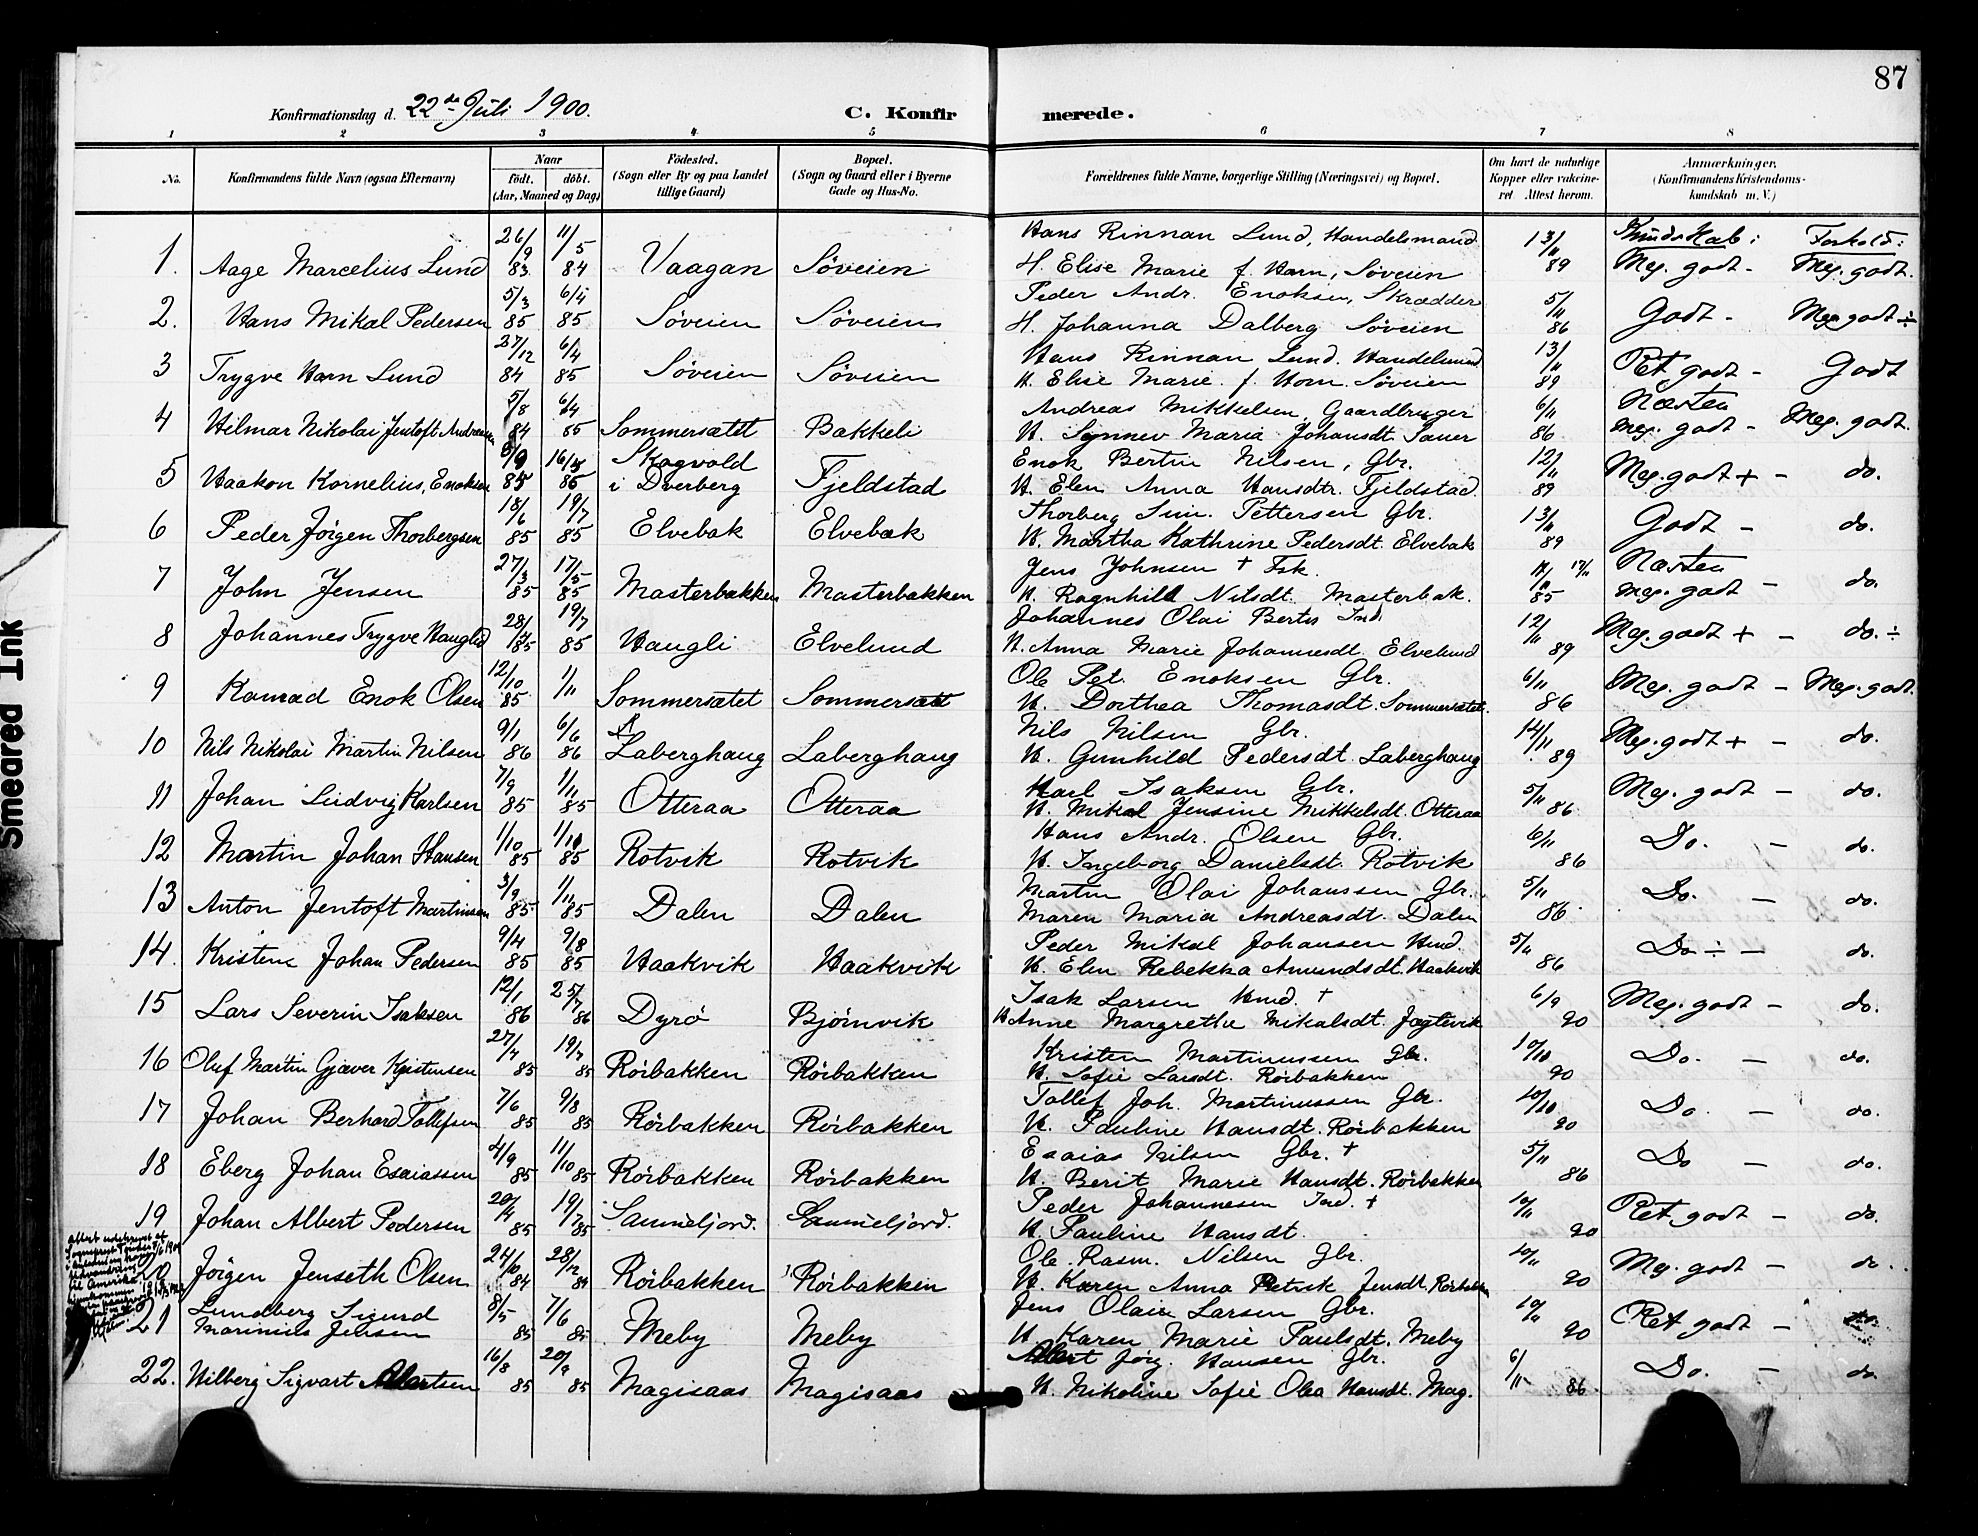 87
Konfirmationsdag d. 22de Juli 1900.
C. Konfirmerede.
1 2 3 4 5 6 7 8
No. Konfirmandens fulde Navn (ogsaa Efternavn) Naar født. døbt. (Aar, Maaned og Dag) Fødested. (Sogn eller By og paa Landet tillige Gaard) Bopæl. (Sogn og Gaard eller i Byerne Gade og Hus-No. Forældrenes fulde Navne, borgerlige Stilling (Næringsvei) og Bopæl. Om havt de naturlige Kopper eller vakcineret Attest herom. Anmærkninger. (Konfirmandens Kristendomskundskab m. V.)
Kundskab: Forhold:
1. Aage Marcelius Lund 26/9 83. 11/5 84 Vaagan Søveien Hans Rinnan Lund, Handelsmand 13/11 89 Meg. godt - Meg. godt.
H. Elise Marie f. Harn, Søveien
2. Hans Mikal Pedersen 5/3 85 6/4 85 Søveien Søveien Peder Andr. Enoksen, Skrædder 5/11 86 Godt - Meg. godt ÷
H. Johanna Dalberg Søveien
3 Trygve Harn Lund 27/12 84 6/4 85 Søveien Søveien Hans Rinnan Lund. Handelsmand 13/11 89 Ret godt - Godt
H. Elise Marie f. Horn. Søveien
4 Hilmar Nikolai Jentoft Andreassen 5/8 84 6/4 85 Sommersætet Bakkeli Andreas Mikkelsen, Gaardbruger 6/11 86 Næsten meg. godt - Meg. godt.
H. Synnev Maria Johansdt.
5 Haakon Kornelius, Enoksen 85 16/5 85 Skogvold i Dverberg Fjeldstad Enok Bertin Nilsen, Gbr. 12/11 89 Meg. godt + - do.
H. Elen Anna Hansdtr. Fjeldstad.
6 Peder Jørgen Thorbergsen 18/6 85 19/7 85 Elvebak Elvebæk Thorberg Sim. Pettersen Gbr. 13/11 89 Godt - do.
H. Martha Kathrine Pedersdt. Elvebak
7 John Jensen 27/3 85 17/5 85 Masterbakken Masterbakken Jens Johnsen † Fsk. 17/11 85 Næsten meg. godt - do.
H. Ragnhild Nilsdt. Masterbak.
8 Johannes Trygve Haugli 28/ 85 19/7 85 Haugli Elvelund Johannes Olai Berts Ind. 12/11 89 Meg. godt + - do. ÷
H. Anna Marie Johannesdt. Elvelund
9 Konrad Enok Olsen 12/10 85 1/11 Sommersætet Sommersætt Ole Pet. Enoksen Gbr. 6/11 86 Meg. godt - Meg. godt.
H. Dorthea Thomasdt. Sommersætet.
10 Nils Nikolai Martin Nilsen 9/1 86 6/6 86 Laberghaug Laberghaug Nils Nilsen Gbr. 14/11 89 Meg. godt + - do.
H. Gunhild Pedersdt. Laberghaug
11 Johan Ludvig Karlsen 7/9 85 1/11 85 Otteraa Otteraa Karl Isaksen Gbr. 5/11 86 Meg. godt - do.
H. Mikal Jensine Mikkelsdt. Otteraa
12 Martin Johan Hansen 1/10 85 1/11 85 Rotvik Rotvik Hans Andr. Olsen Gbr. 6/11 86 Do. - do.
H. Ingeborg Danielsdt. Rotvik
13 Anton Jentoft Martinsen 3/9 85 1/11 85 Dalen Dalen Martin Olai Johanssen Gbr. 5/11 86 Do. - do.
Maren Maria Andreasdt. Dalen
14. Kristen Johan Pedersen 9/4 85 9/8 85 Haakvik Haakvik Peder Mikal Johansen Hmd. 5/11 86 Do ÷ - do.
H. Elen Rebekka Amundsdt. Haakvik
15 Lars Severin Isaksen 12/1 86 25/7 86 Dyrø Bjørnvik Isak Larsen Hmd. † 6/9 90 Meg. godt - do.
H. Anne Margrethe Mikalsdt. Jægtevik
16 Oluf Martin Gjæver Kristensen 27/4 85 19/7 85 Røibakken Røibakken Kristen Martinussen Gbr. 10/10 90 Do. - do.
H. Sofie Larsdt. Røibakken
17 Johan Berhard Tollefsen 7/6 85 9/8 85 Røibakken Røibakken Tollef Joh. Martinussen Gbr. 10/10 90 Do. - do.
H. Pauline Hansdt. Røibakken
18 Eberg Johan Esaiassen 4/9 85 11/10 85 Røibakken Røibakken Esaias Nilsen Gbr. † 5/11 86 Do - do.
H. Berit Marie Hansdt. Røibakken
19 Johan Albert Pedersen 20/4 85 19/7 85 Saumeljord. Saumeljord. Peder Johannesen Ind. † 10/11 90 Ret godt - do.
H. Pauline Hansdt.
20 Jørgen Jenseth Olsen 24/6 84 28/12 84 Røibakken Røibakken Ole Rasm. Nilsen Gbr. 10/11 90 Mg. godt - do.
H. Karen Anna Petrik Jensdt.
21 Lundberg Sigurd Marinius Jensen 8/5 85 7/6 85 Meby Meby Jens Olaus Larsen Gbr. 10/11 90 Ret godt - do.
H. Karen Marie Paulsdt. Meby
22. Hilberg Sigvart Albertsen 16/8 85 20/9 85 Magisaas Magisaas Albert Jørg. Hansen Gbr. 6/11 86 Do. - do
H. Nikoline Sofie Olea Hansdt. Mag.
Smeared Ink